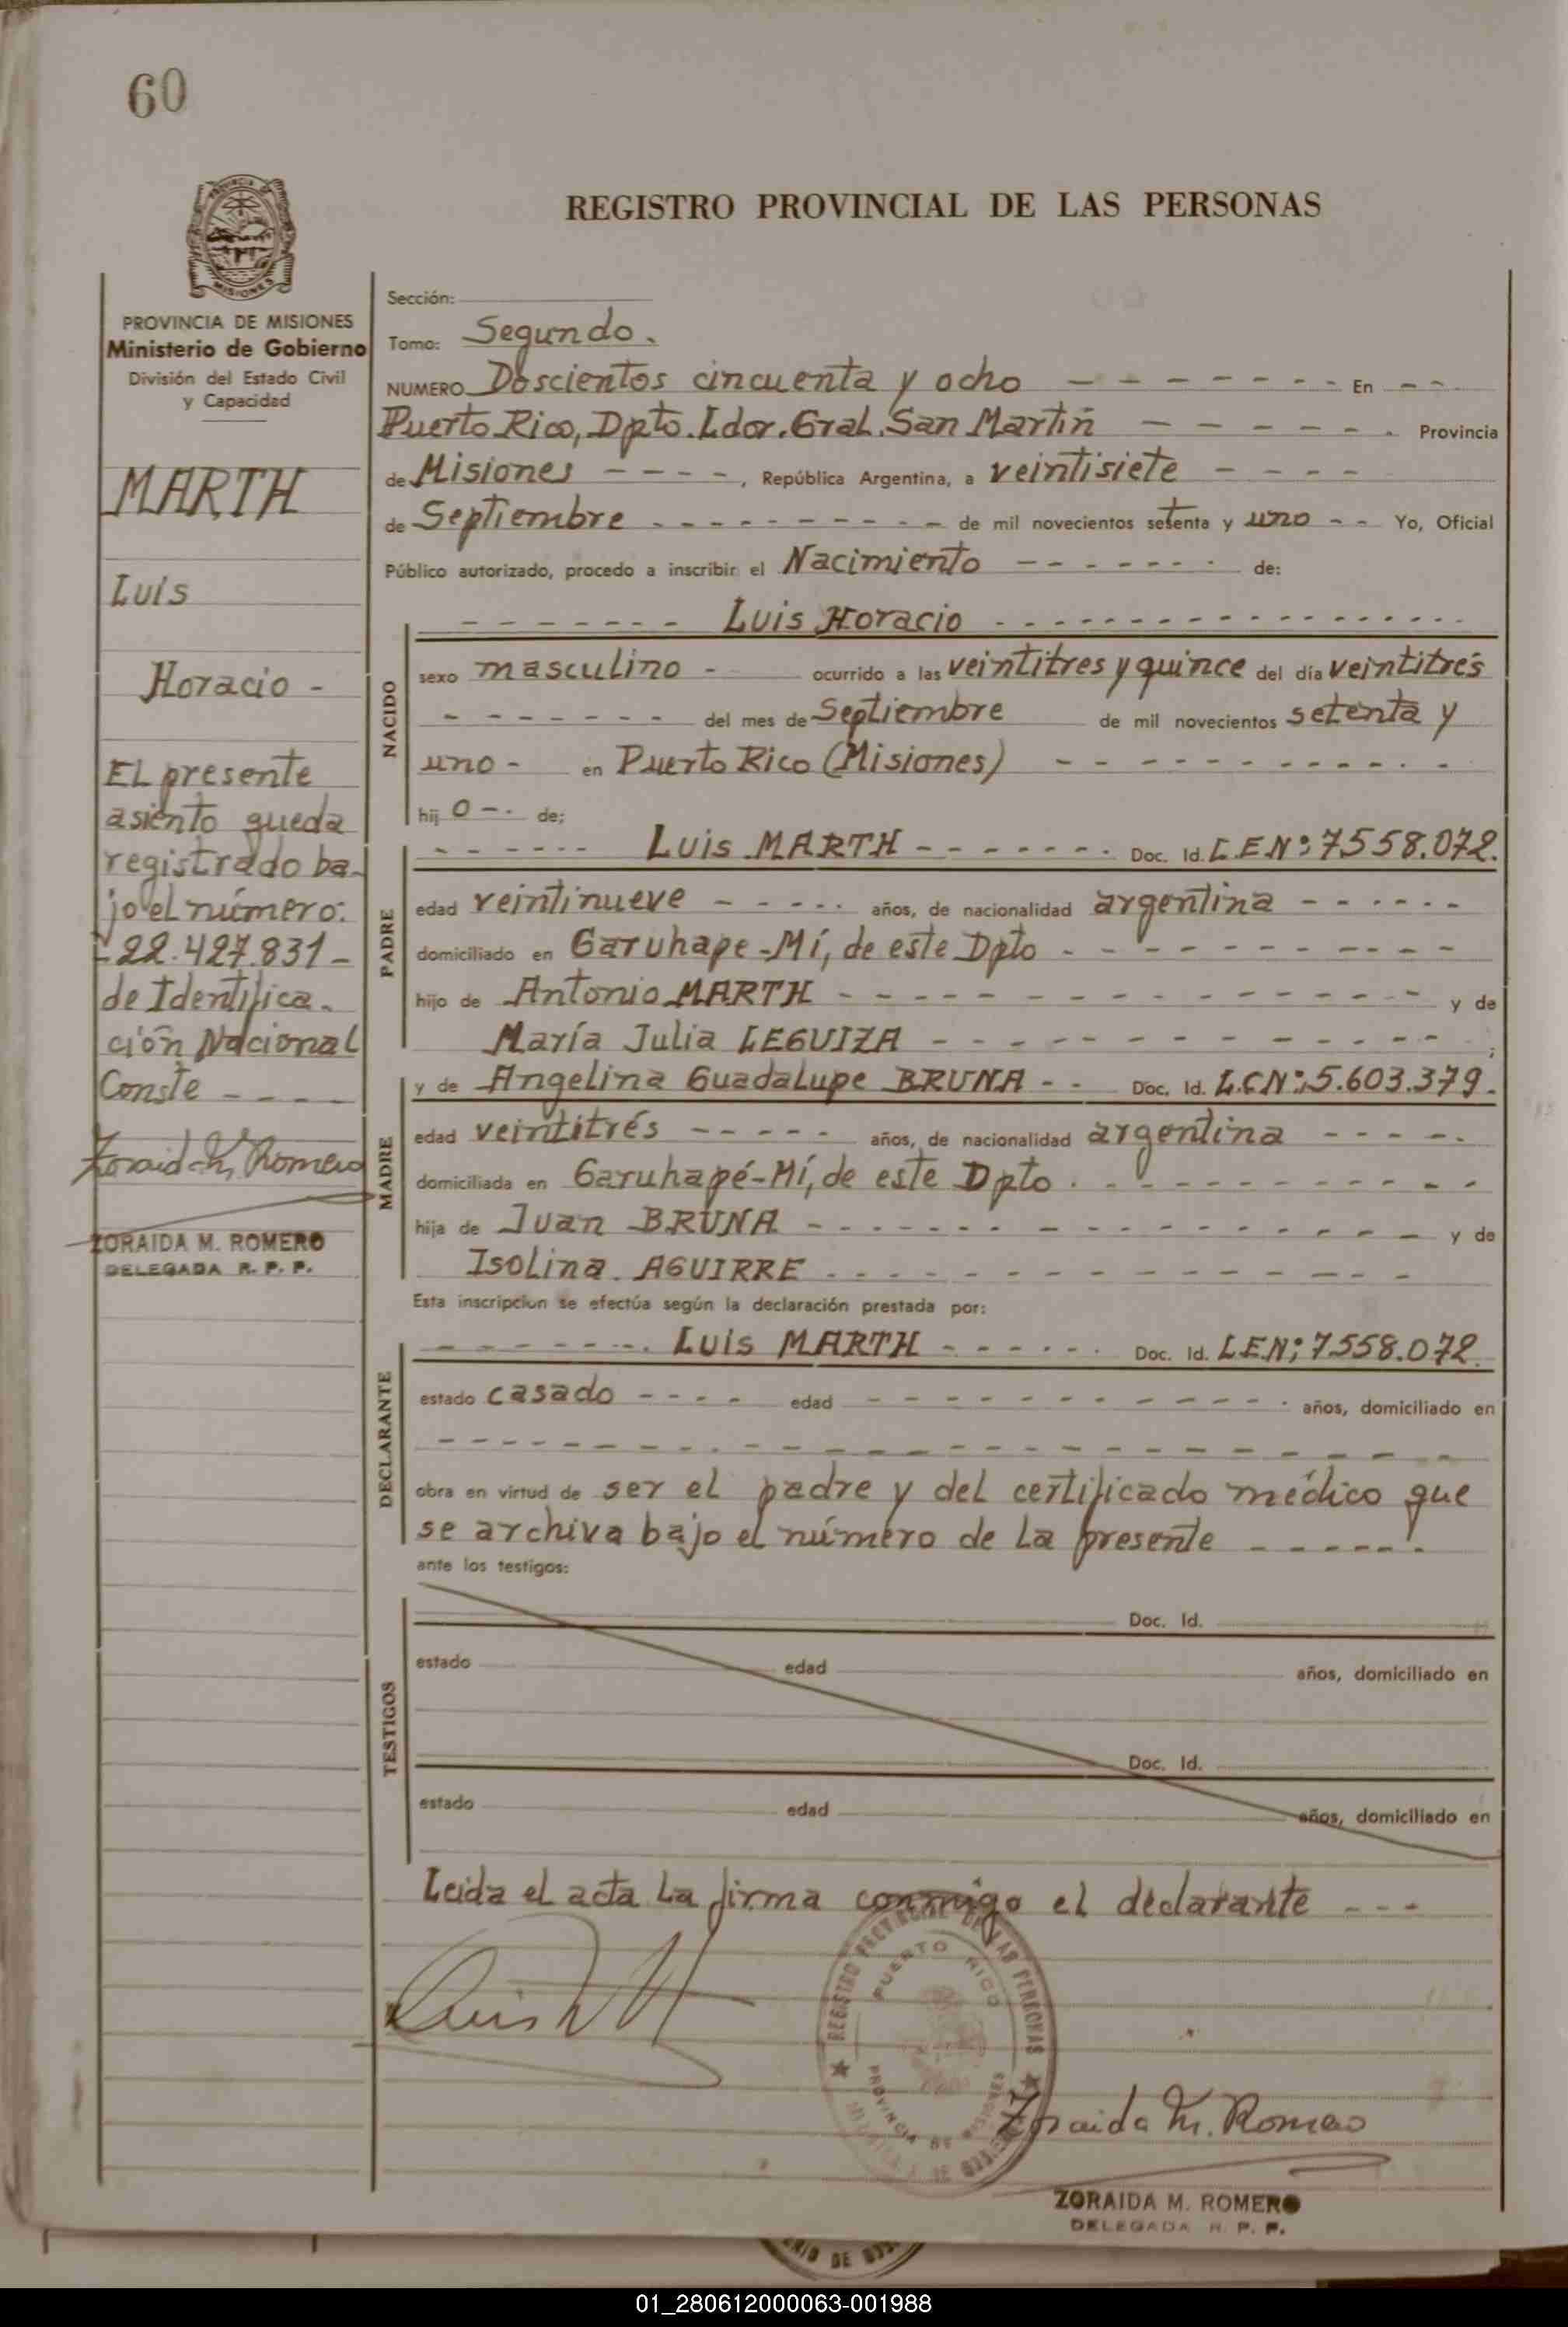 60
PROVINCIA DE MISIONES
Ministerio de Gobierno
División del Estado Civil
y Capacidad
MARTH
Luis
Horacio -
EL presente
asiento queda
registrado ba-
jo el número:
22.427.831 -
de Identifica-
ción Nacional
Conste - - - -
Zoraida M. Romero
ZORAIDA M. ROMERO
DELEGADA R. P. P.
REGISTRO PROVINCIAL DE LAS PERSONAS
Sección:
Tomo: Segundo.
NUMERO Doscientos cincuenta y ocho - - - - - - - - En - -
Puerto Rico, Dpto. Ldor. Gral. San Martín - - - - - - Provincia
de Misiones - - - -, República Argentina, a veintisiete - - - -
de Septiembre - - - - - - - - - - de mil novecientos setenta y uno - - Yo, Oficial
Público autorizado, procedo a inscribir el Nacimiento - - - - - - - de:
- - - - - - - Luis Horacio - - - - - - - - - - - - - - - -
NACIDO
sexo masculino - ocurrido a las veintitres y quince del día veintitrés
- - - - - - - del mes de Septiembre de mil novecientos setenta y
uno - en Puerto Rico (Misiones) - - - - - - - - - - -
hij o - . de:
PADRE
- - - - - - Luis MARTH - - - - - - - Doc. Id. L.E.Nº: 7.558.072.
edad veintinueve - - - - - años, de nacionalidad argentina - - - - - -
domiciliado en Garuhape-Mí, de este Dpto - - - - - - - - - - -
hijo de Antonio MARTH - - - - - - - - - - - - - - - y de
María Julia LEGUIZA - - - - - - - - - - - - - ;
MADRE
y de Angelina Guadalupe BRUNA - - Doc. Id. L.C.Nº: 5.603.379.
edad veintitrés - - - - - años, de nacionalidad argentina - - - - -
domiciliada en Garuhapé-Mí, de este Dpto. - - - - - - - - - - -
hija de Juan BRUNA - - - - - - - - - - - - - - - y de
Isolina AGUIRRE - - - - - - - - - - - - - -
Esta inscripción se efectúa según la declaración prestada por:
DECLARANTE
- - - - - - - Luis MARTH - - - - - - Doc. Id. L.E.Nº: 7.558.072
estado casado - - - - edad - - - - - - - - - - - - años, domiciliado en
- - - - - - - - - - - - - - - - - - - - - - - -
obra en virtud de ser el padre y del certificado médico que
se archiva bajo el número de la presente - - - - - -
ante los testigos:
TESTIGOS
Doc. Id.
estado edad años, domiciliado en
Doc. Id.
estado edad años, domiciliado en
Leida el acta la firma conmigo el declarante - - -
REGISTRO PROVINCIAL DE LAS PERSONAS
PUERTO RICO
PROVINCIA DE MISIONES
Zoraida M. Romero
ZORAIDA M. ROMERO
DELEGADA R. P. P.
01_280612000063-001988